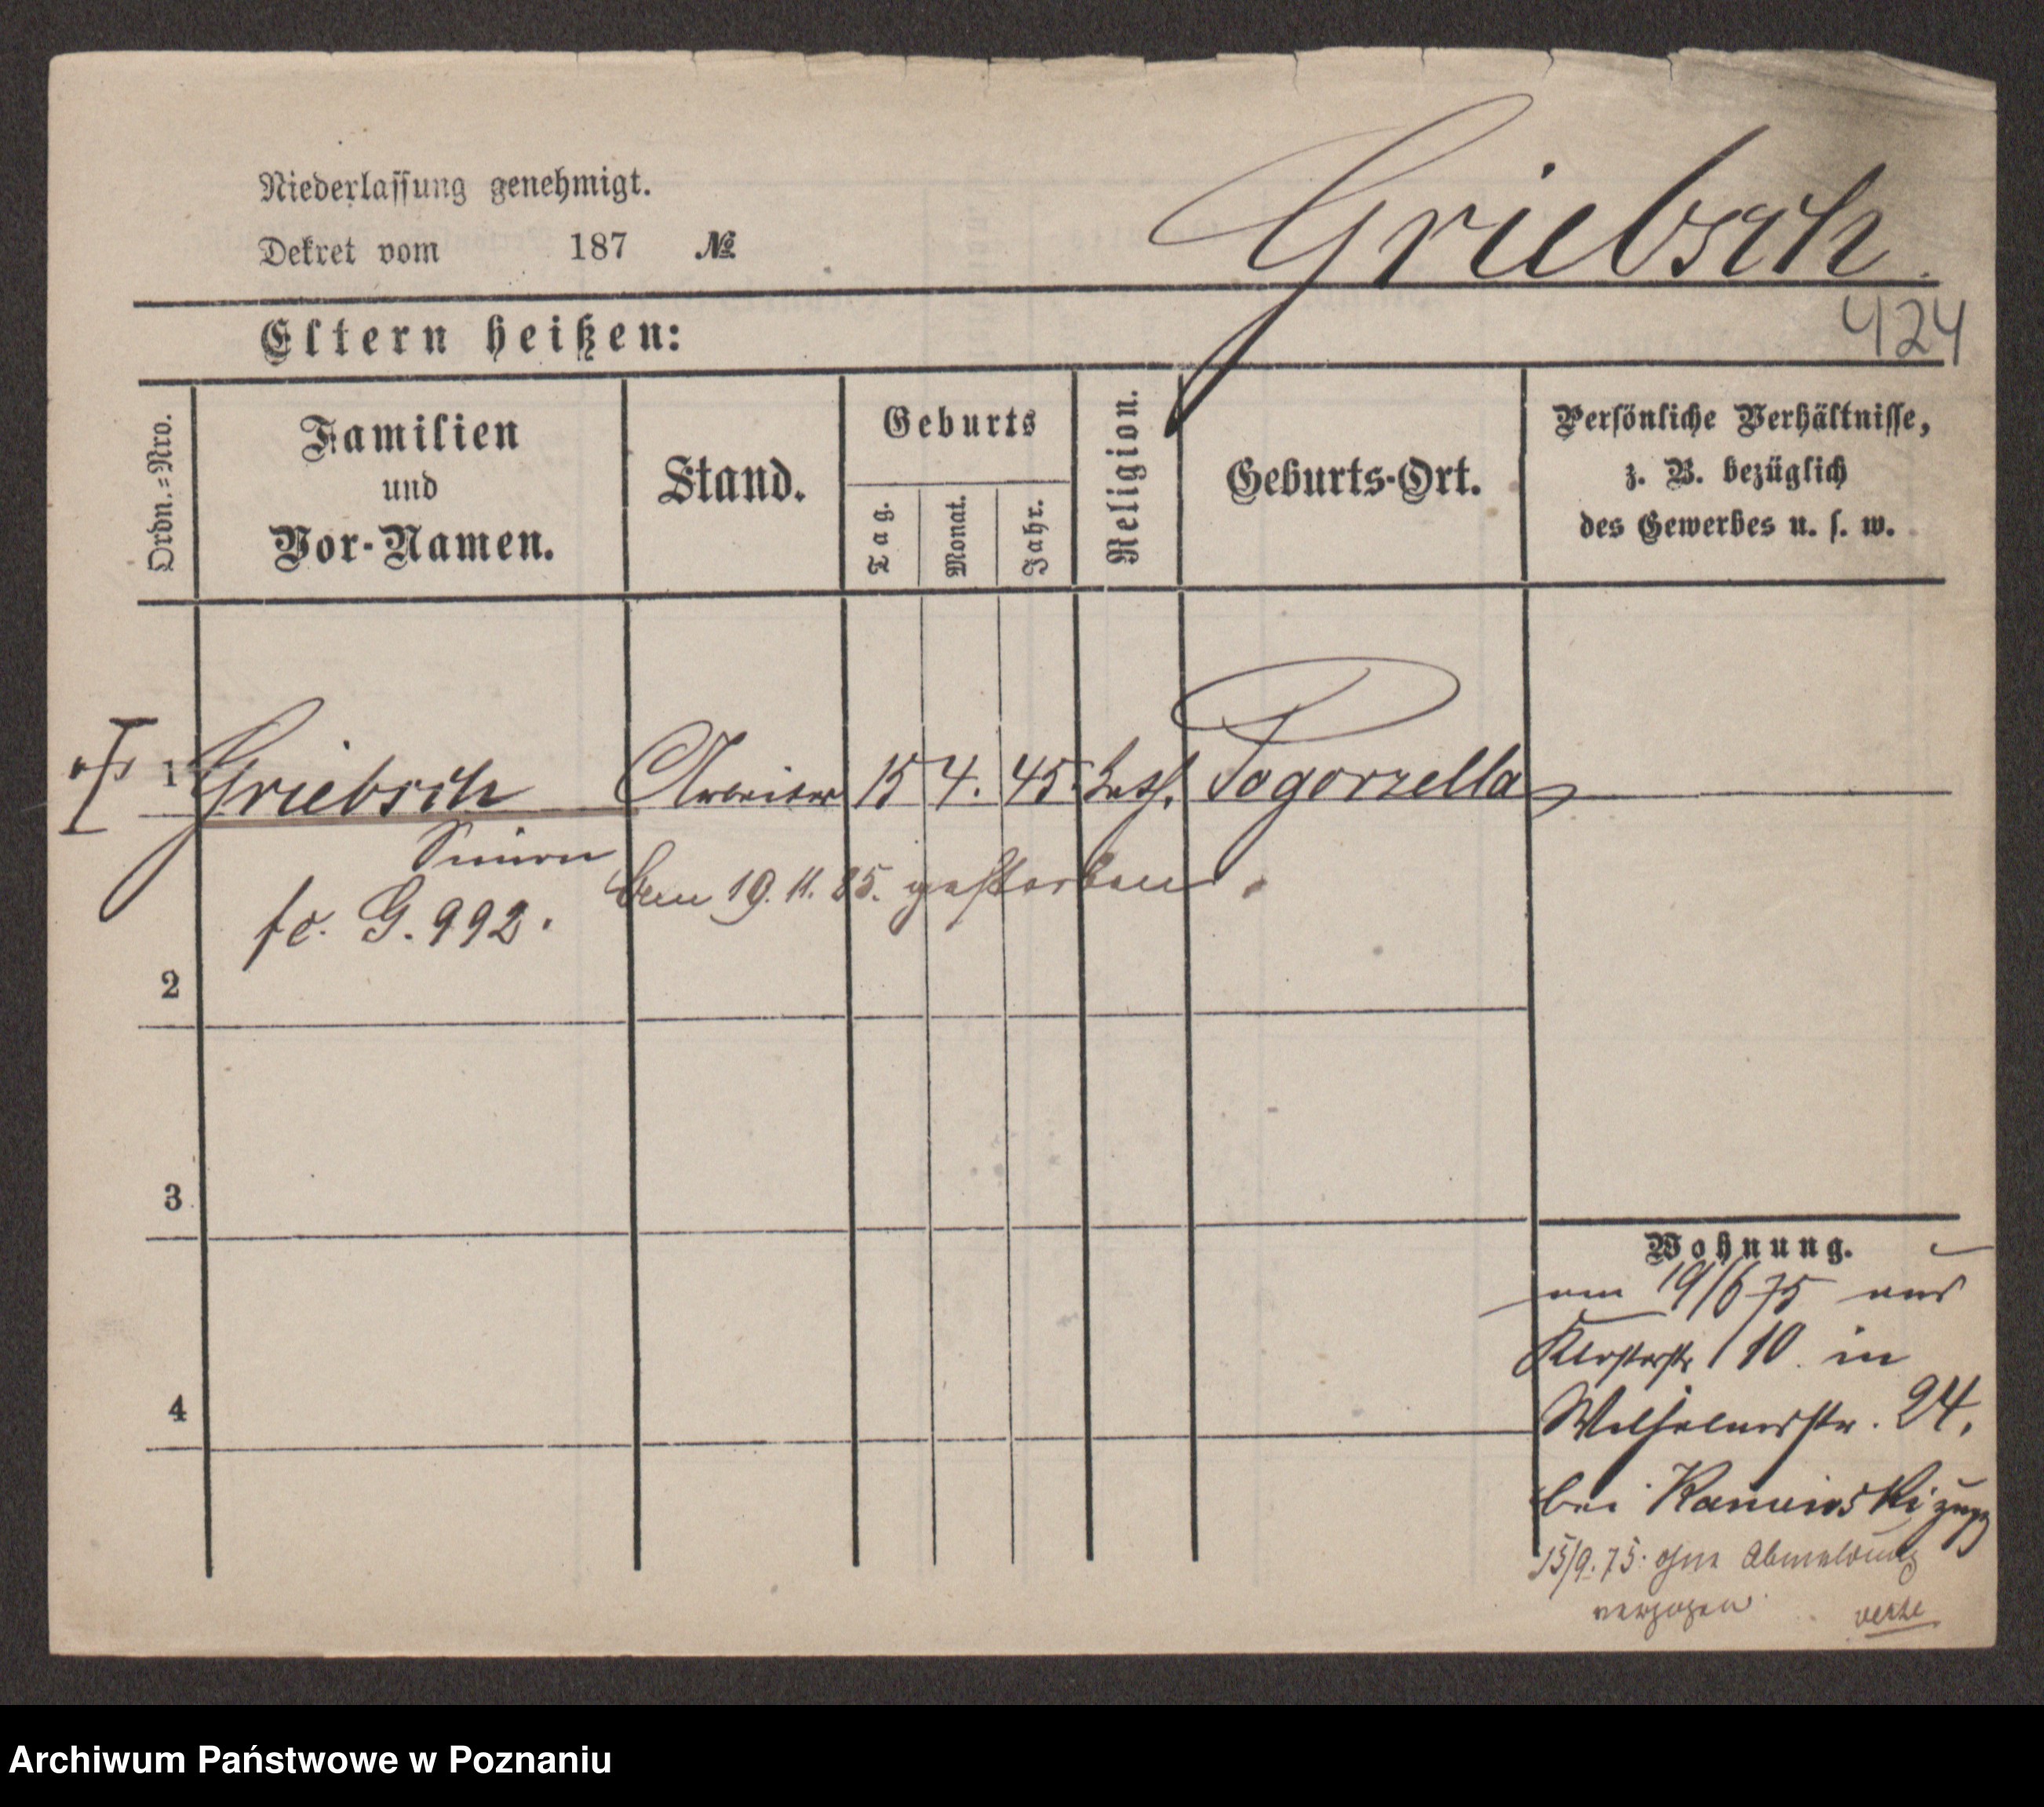 Niederlassung genehmigt.
Dekret vom 187 №
Griebsch.
424
Eltern heißen:
Ordn.=Nro.
Familien
und
Vor-Namen.
Stand.
Geburts
Tag.
Monat.
Jahr.
Religion.
Geburts-Ort.
Persönliche Verhältnisse,
z. B. bezüglich
des Gewerbes u. s. w.
1 Griebsch Arbeiter 15 4. 45. kath. Pogorzella
Simon
den 19. 11. 85. gestorben.
fc. G. 992.
2
3
4
Wohnung.
am 19/6 75 aus
Klosterstr 10. in
Wilhelmsstr. 24.
bei Kaminski
15/9. 75. ohne Abmeldung
verzogen